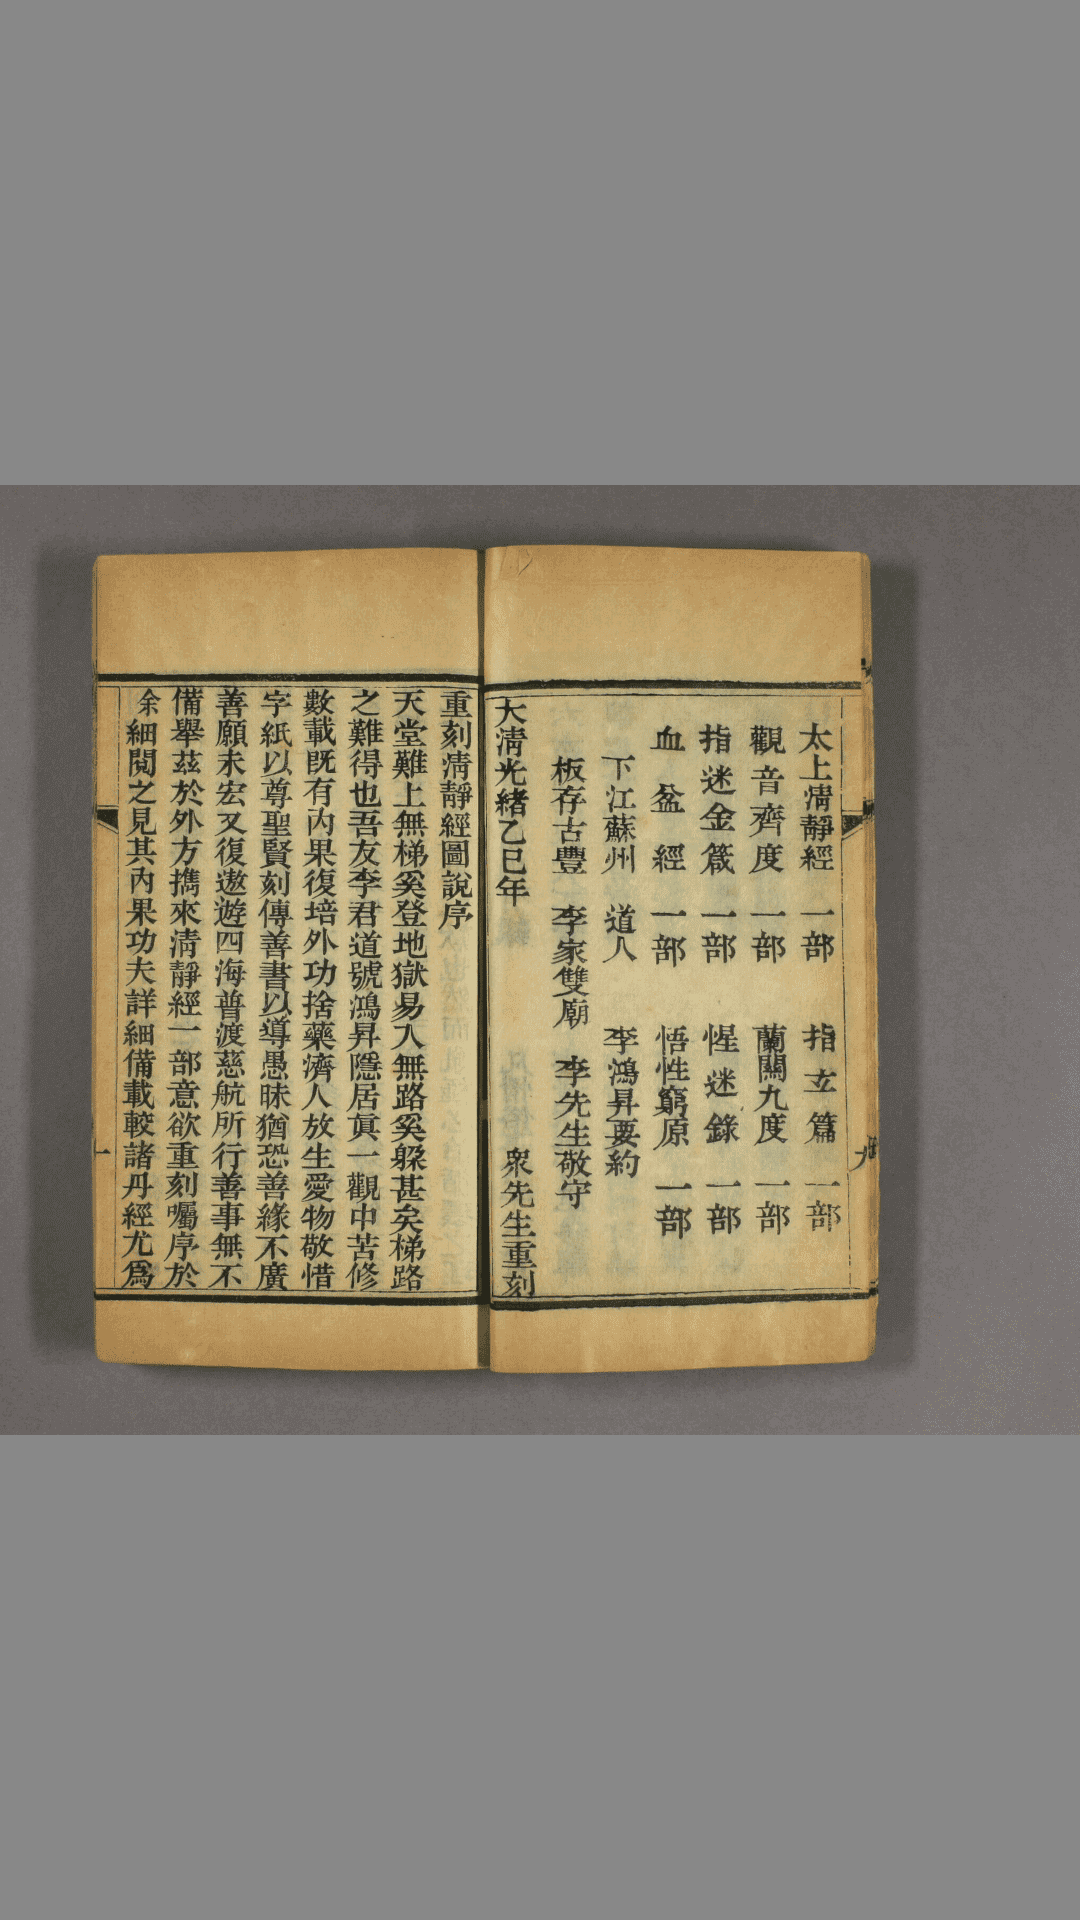 太上清靜經 一部 指玄篇 一部
觀音齊度 一部 蘭關九度 一部
指迷金箴 一部 惺迷錄 一部
血盆經 一部 悟性窮原 一部
下江蘇州 道人 李鴻昇要約
板存古豐 李家雙廟 李先生敬守
大淸光緒乙巳年 衆先生重刻
重刻淸靜經圖說序
天堂難上無梯奚登地獄易入無路奚躲甚矣梯路
之難得也吾友李君道號鴻昇隱居眞一觀中苦修
數載旣有內果復培外功捨藥濟人放生愛物敬惜
字紙以尊聖賢刻傳善書以導愚昧猶恐善緣不廣
善願未宏又復遨遊四海普渡慈航所行善事無不
備舉茲於外方擕來淸靜經一部意欲重刻囑序於
余細閱之見其內果功夫詳細備載較諸丹經尤爲
一